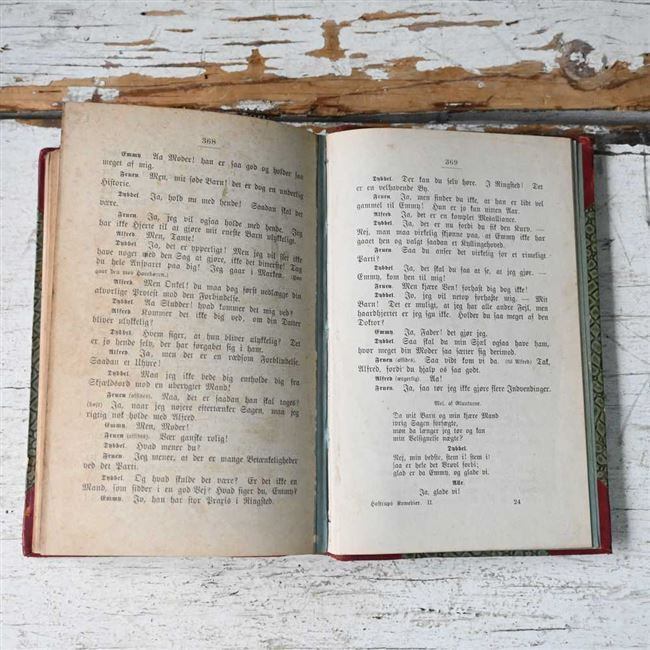 368
Emmy. Aa Moder! han er saa god og holder saa
meget af mig.
Fruen. Men, mit søde Barn! det er dog en underlig
Historie.
Dybbel. Ja, hold nu med hende! Saadan skal det
være.
Fruen. Ja, jeg vil ogsaa holde med hende. Jeg
har ikke Hjerte til at gjøre mit eneste Barn ulykkeligt.
Alfred. Men, Tante!
Dybbel. Ja, det er ypperligt! Men jeg vil slet ikke
have noget med den Sag at gjøre, ikke det bitterste! Tag
du hele Ansvaret paa dig! Jeg gaar i Marken. (Vil
gaa
Alfred. Men Onkel! du maa dog først nedlægge din
alvorlige Protest mod den Forbindelse.
Dybbel. Aa Sludder! hvad kommer det mig ved?
Alfred. Kommer det ikke dig ved, om din Datter
bliver ulykkelig?
Dybbel. Hvem siger, at hun bliver ulykkelig? Det
er jo hende selv, der har forgabet sig i ham.
Alfred. Ja, men det er en rædsom Forblindelse.
Saadan et Uhyre!
Dybbel. Maa jeg ikke bede dig entholde dig fra
Skjældsord mod en uberygtet Mand!
Fruen (afsides). Naa, det er saadan han skal tages?
(høit) Ja, naar jeg nøjere eftertænker Sagen, maa jeg
rigtig nok holde med Alfred.
Emmy. Men, Moder!
Fruen (afsides). Vær ganske rolig!
Dybbel. Hvad mener du?
Fruen. Jeg mener, at der er mange Betænkeligheder
ved det Parti.
Dybbel. Og hvad skulde det være? Er det ikke en
Mand, som sidder i en god Vej? Hvad siger du, Emmy?
Emmy. Jo, han har stor Praxis i Ringsted.
369
Dybbel. Der kan du selv høre. I Ringsted! Det
er en velhavende By.
Fruen. Ja, men finder du ikke, at han er lidt vel
gammel til Emmy! Hun er jo kun nitten Aar.
Alfred. Ja, det er en komplet Mesalliance.
Dybbel. Ja, det er nu fordi du fik den Kurv. —
Nej, man maa virkelig skjønne paa, at Emmy ikke har
gaaet hen og valgt saadan et Kyllingehoved.
Fruen. Saa du anser det virkelig for et rimeligt
Parti?
Dybbel. Ja, det skal du faa at se, at jeg gjør. —
Emmy, kom hen til mig!
Fruen. Men kjære Ven! forhast dig dog ikke!
Dybbel. Jo, jeg vil netop forhaste mig. — Mit
Barn! Det er muligt, at jeg har alle andre Fejl, men
haardhjertet er jeg ikke. Holder du saa meget af den
Doktor?
Emmy. Ja, Fader! det gjør jeg.
Dybbel. Saa skal du min Sjæl ogsaa have ham,
hvor meget din Moder saa sætter sig derimod.
Fruen (afsides). Saa vidt kom vi da. (til Alfred) Tak,
Alfred, fordi du hjalp os saa godt.
Alfred (ærgerlig). Aa!
Fruen. Ja, saa tør jeg ikke gjøre flere Indvendinger.
Mel. af
Da mit Barn og min kjære Mand
ivrig Sagen forfægte,
mon da længer jeg tør og kan
min Velsignelse nægte?
Dybbel.
Nej, min bedste, stem i! stem i!
saa er hele det Vrøvl forbi;
glad er da Emmy, og glade vi.
Alle.
Ja, glade vi!
Hostrups Komedier. II. 24